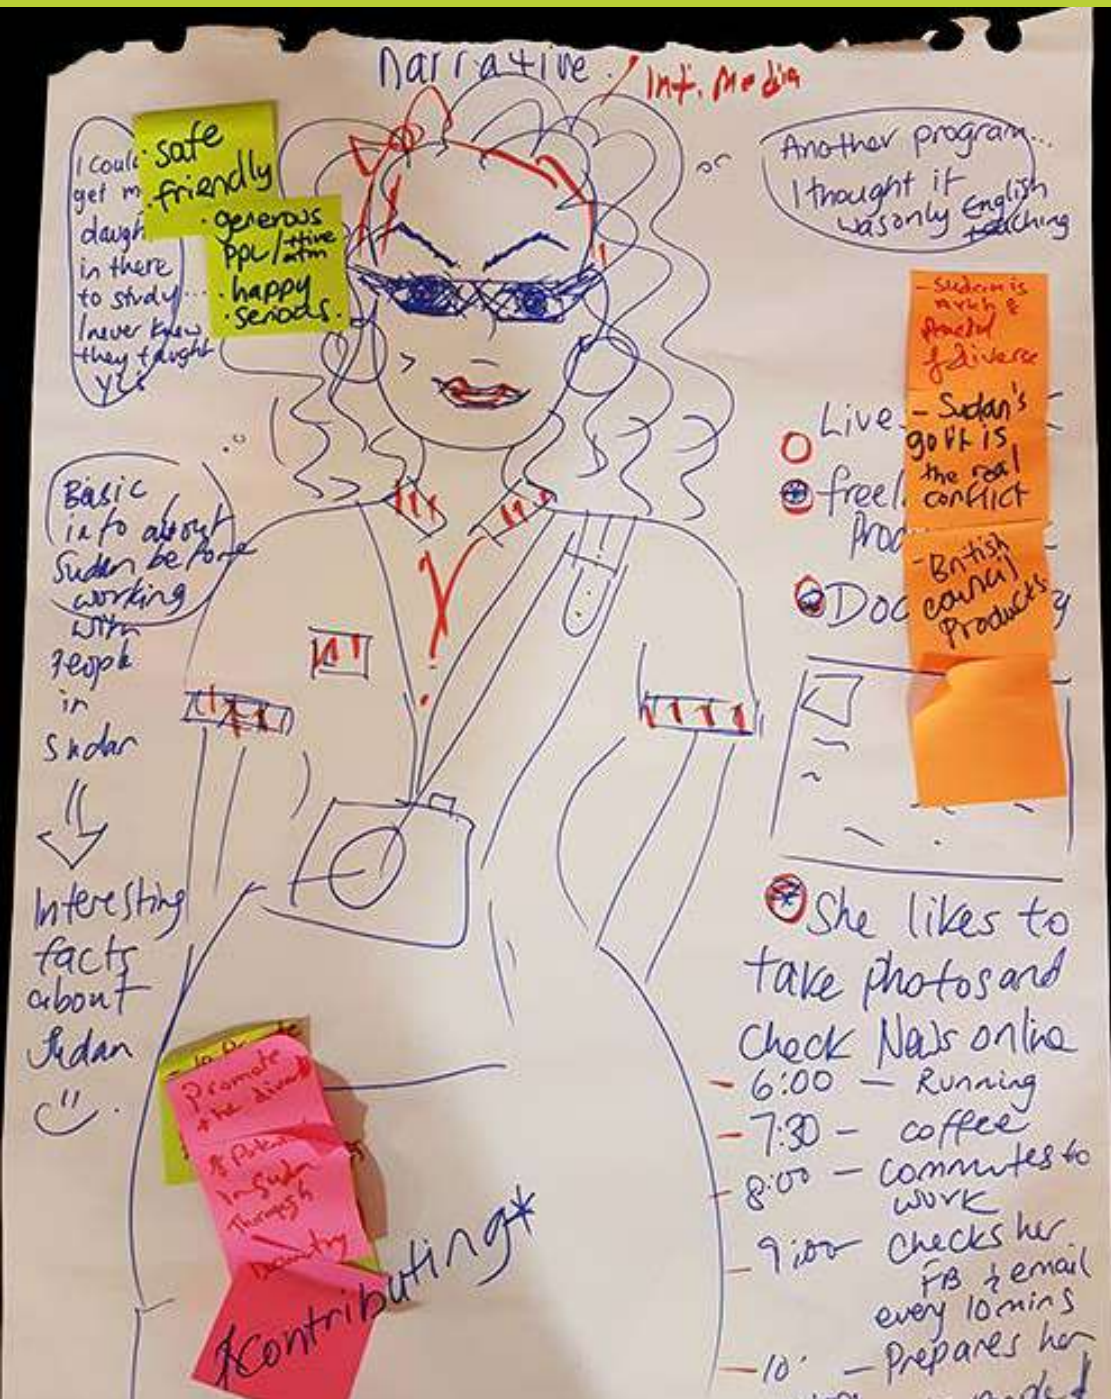 Narrative / Int. Media
I could
get m
daugh
in there
to study...
I never knew
they taught
• safe
• friendly
• generous
ppl/+tive
atm
• happy
• serious.
or
Another program...
I thought it
was only English
teaching
- Sudan is
& diverse
- Sudan's
gov't is
the real
conflict
- British
council
Products
Live
freel
Prod
Doc
Basic
info about
Sudan before
working
with
People
in
Sudan
Interesting
facts
about
Sudan
She likes to
take photos and
Check News online
- 6:00 - Running
- 7:30 - coffee
- 8:00 - Commutes to
work
- 9:00 Checks her
FB & email
every 10 mins
- 10: - Prepares her
Promote
the
in Suda
Through
Contributing*